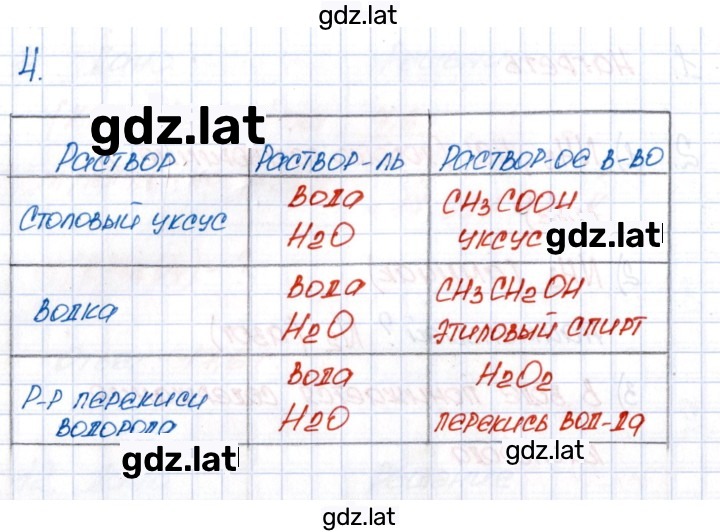 gdz.lat
4.
gdz.lat
Раствор. Раствор-ль Раствор-ое в-во
Столовый уксус Вода CH3COOH
H2O уксус gdz.lat
Водка Вода CH3CH2OH
H2O этиловый спирт
Р-р перекиси Вода H2O2
водорода H2O перекись вод-да
gdz.lat gdz.lat
gdz.lat